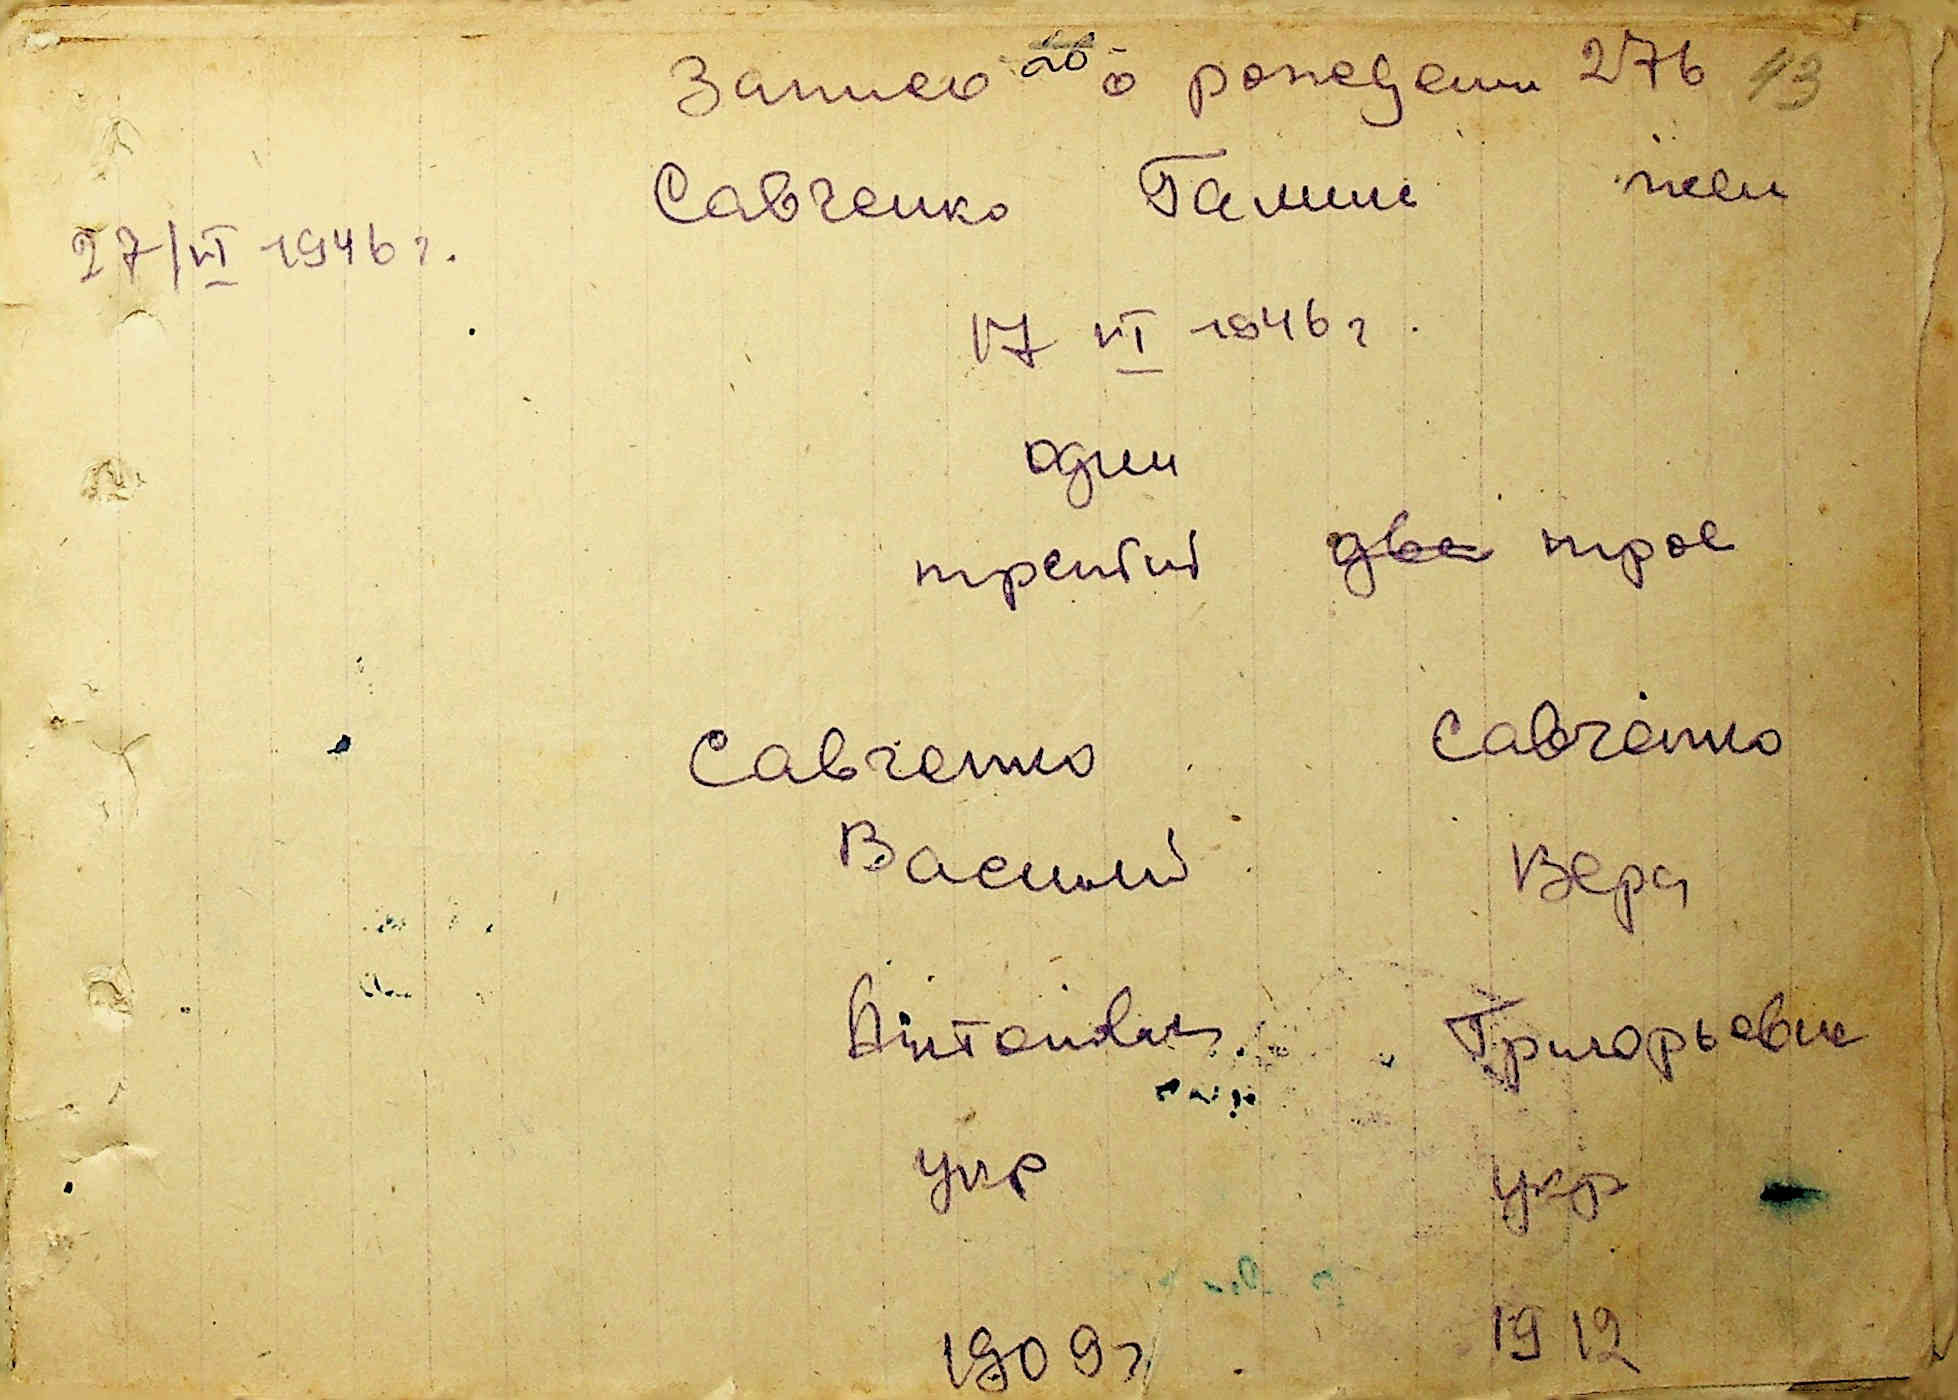 Запись о рождении 276 43
Савченко Галина жен
27/VI 1946 г.
17 VI 1946 г.
один
третий два трое
Савченко Савченко
Василий Вера
Антонович Григорьевна
укр укр
1909 г 1912